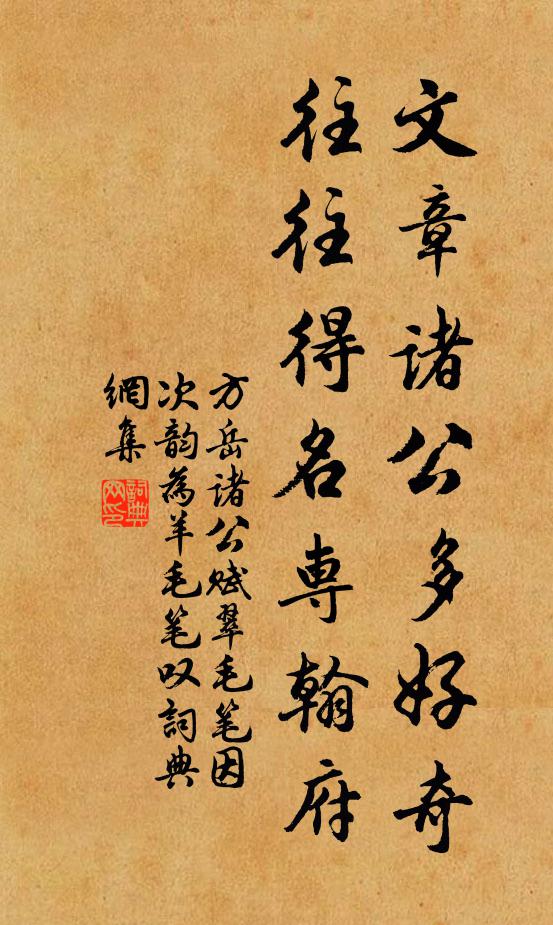 文章諸公多好奇
往往得名専翰府
方岳諸公賦翠毛笔因
次韵為羊毛笔叹詞典
網集
詞典
网印